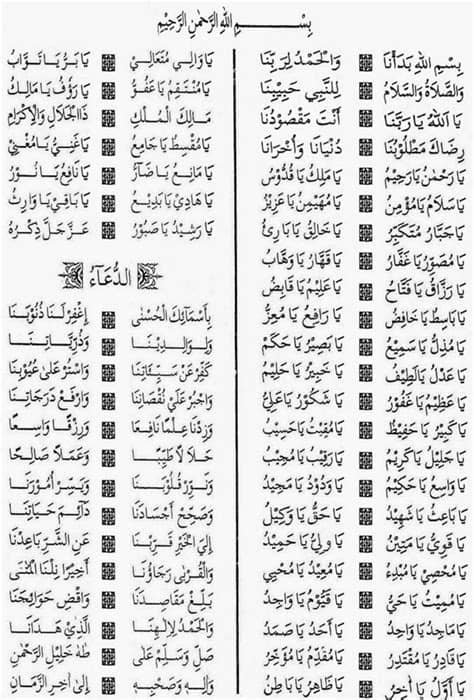 بِسْــمِ اللهِ الرَّحْمٰنِ الرَّحِيْمِ
بِسْمِ اللهِ بَدَأْنَا وَالْحَمْدُ لِرَبِّنَا
وَالصَّلَاةُ وَالسَّلَامُ لِلنَّبِي حَبِيْبِنَا
يَا اَللهُ يَا رَبَّنَا أَنْتَ مَقْصُوْدُنَا
رِضَاكَ مَطْلُوْبُنَا دُنْيَانَا وَأُخْرَانَا
يَا رَحْمٰنُ يَا رَحِيْمُ يَا مَلِكُ يَا قُدُّوْسُ
يَا سَلَامُ يَا مُؤْمِنُ يَا مُهَيْمِنُ يَا عَزِيْزُ
يَا جَبَّارُ مُتَكَبِّرُ يَا خَالِقُ يَا بَارِئُ
يَا مُصَوِّرُ يَا غَفَّارُ يَا قَهَّارُ يَا وَهَّابُ
يَا رَزَّاقُ يَا فَتَّاحُ يَا عَلِيْمُ يَا قَابِضُ
يَا بَاسِطُ يَا خَافِضُ يَا رَافِعُ يَا مُعِزُّ
يَا مُذِلُّ يَا سَمِيْعُ يَا بَصِيْرُ يَا حَكَمُ
يَا عَدْلُ يَا لَطِيْفُ يَا خَبِيْرُ يَا حَلِيْمُ
يَا عَظِيْمُ يَا غَفُوْرُ يَا شَكُوْرُ يَا عَلِيُّ
يَا كَبِيْرُ يَا حَفِيْظُ يَا مُقِيْتُ يَا حَسِيْبُ
يَا جَلِيْلُ يَا كَرِيْمُ يَا رَقِيْبُ يَا مُجِيْبُ
يَا وَاسِعُ يَا حَكِيْمُ يَا وَدُوْدُ يَا مَجِيْدُ
يَا بَاعِثُ يَا شَهِيْدُ يَا حَقُّ يَا وَكِيْلُ
يَا قَوِيُّ يَا مَتِيْنُ يَا وَلِيُّ يَا حَمِيْدُ
يَا مُحْصِيْ يَا مُبْدِءُ يَا مُعِيْدُ يَا مُحْيِي
يَا مُمِيْتُ يَا حَيُّ يَا قَيُّوْمُ يَا وَاجِدُ
يَا مَاجِدُ يَا وَاحِدُ يَا أَحَدُ يَا صَمَدُ
يَا قَادِرُ يَا مُقْتَدِرُ يَا مُقَدِّمُ يَا مُؤَخِّرُ
يَا أَوَّلُ يَا أٰخِرُ يَا ظَاهِرُ يَا بَاطِنُ
يَا وَالِي مُتَعَالِي يَا بَرُّ يَا تَوَّابُ
يَا مُنْتَقِمُ يَا عَفُوُّ يَا رَؤُفُ يَا مَالِكُ
مَالِكَ الْمُلْكِ ذَا الْجَلَالِ وَالْاِكْرَامِ
يَا مُقْسِطُ يَا جَامِعُ يَا غَنِيُّ يَا مُغْنِيْ
يَا مَانِعُ يَا ضَآرُّ يَا نَافِعُ يَا نُوْرُ
يَا هَادِيْ يَا بَدِيْعُ يَا بَاقِيْ يَا وَارِثُ
يَا رَشِيْدُ يَا صَبُوْرُ عَزَّ جَلَّ ذِكْرُهُ
الدُّعَاءُ
بِأَسْمَائِكَ الْحُسْنٰى إِغْفِرْ لَنَا ذُنُوْبَنَا
وَلِوَالِدِيْنَا وَذُرِّيَّاتِنَا
كَفِّرْ عَنْ سَيِّئَاتِنَا وَاسْتُرْ عَلٰى عُيُوْبِنَا
وَاجْبُرْ عَلٰى نُقْصَانِنَا وَارْفَعْ دَرَجَاتِنَا
وَزِدْنَا عِلْمًا نَافِعًا وَرِزْقًا وَاسِعًا
حَلَالًا طَيِّبًا وَعَمَلًا صَالِحًا
وَنَوِّرْ قُلُوْبَنَا وَيَسِّرْ أُمُوْرَنَا
وَصَحِّحْ أَجْسَادَنَا دَائِمَ حَيَاتِنَا
إِلَى الْخَيْرِ قَرِّبْنَا عَنِ الشَّرِّ بَاعِدْنَا
وَالْقُرْبٰى رَجَاؤُنَا أَخِيْرًا نِلْنَا الْمُنٰى
بَلِّغْ مَقَاصِدَنَا وَاقْضِ حَوَائِجَنَا
وَالْحَمْدُ لِإِلٰهِنَا الَّذِيْ هَدَانَا
صَلِّ وَسَلِّمْ عَلٰى طٰهٰ خَلِيْلِ الرَّحْمٰنِ
وَاٰلِهِ وَصَحْبِهِ إِلٰى اٰخِرِ الزَّمَانِ